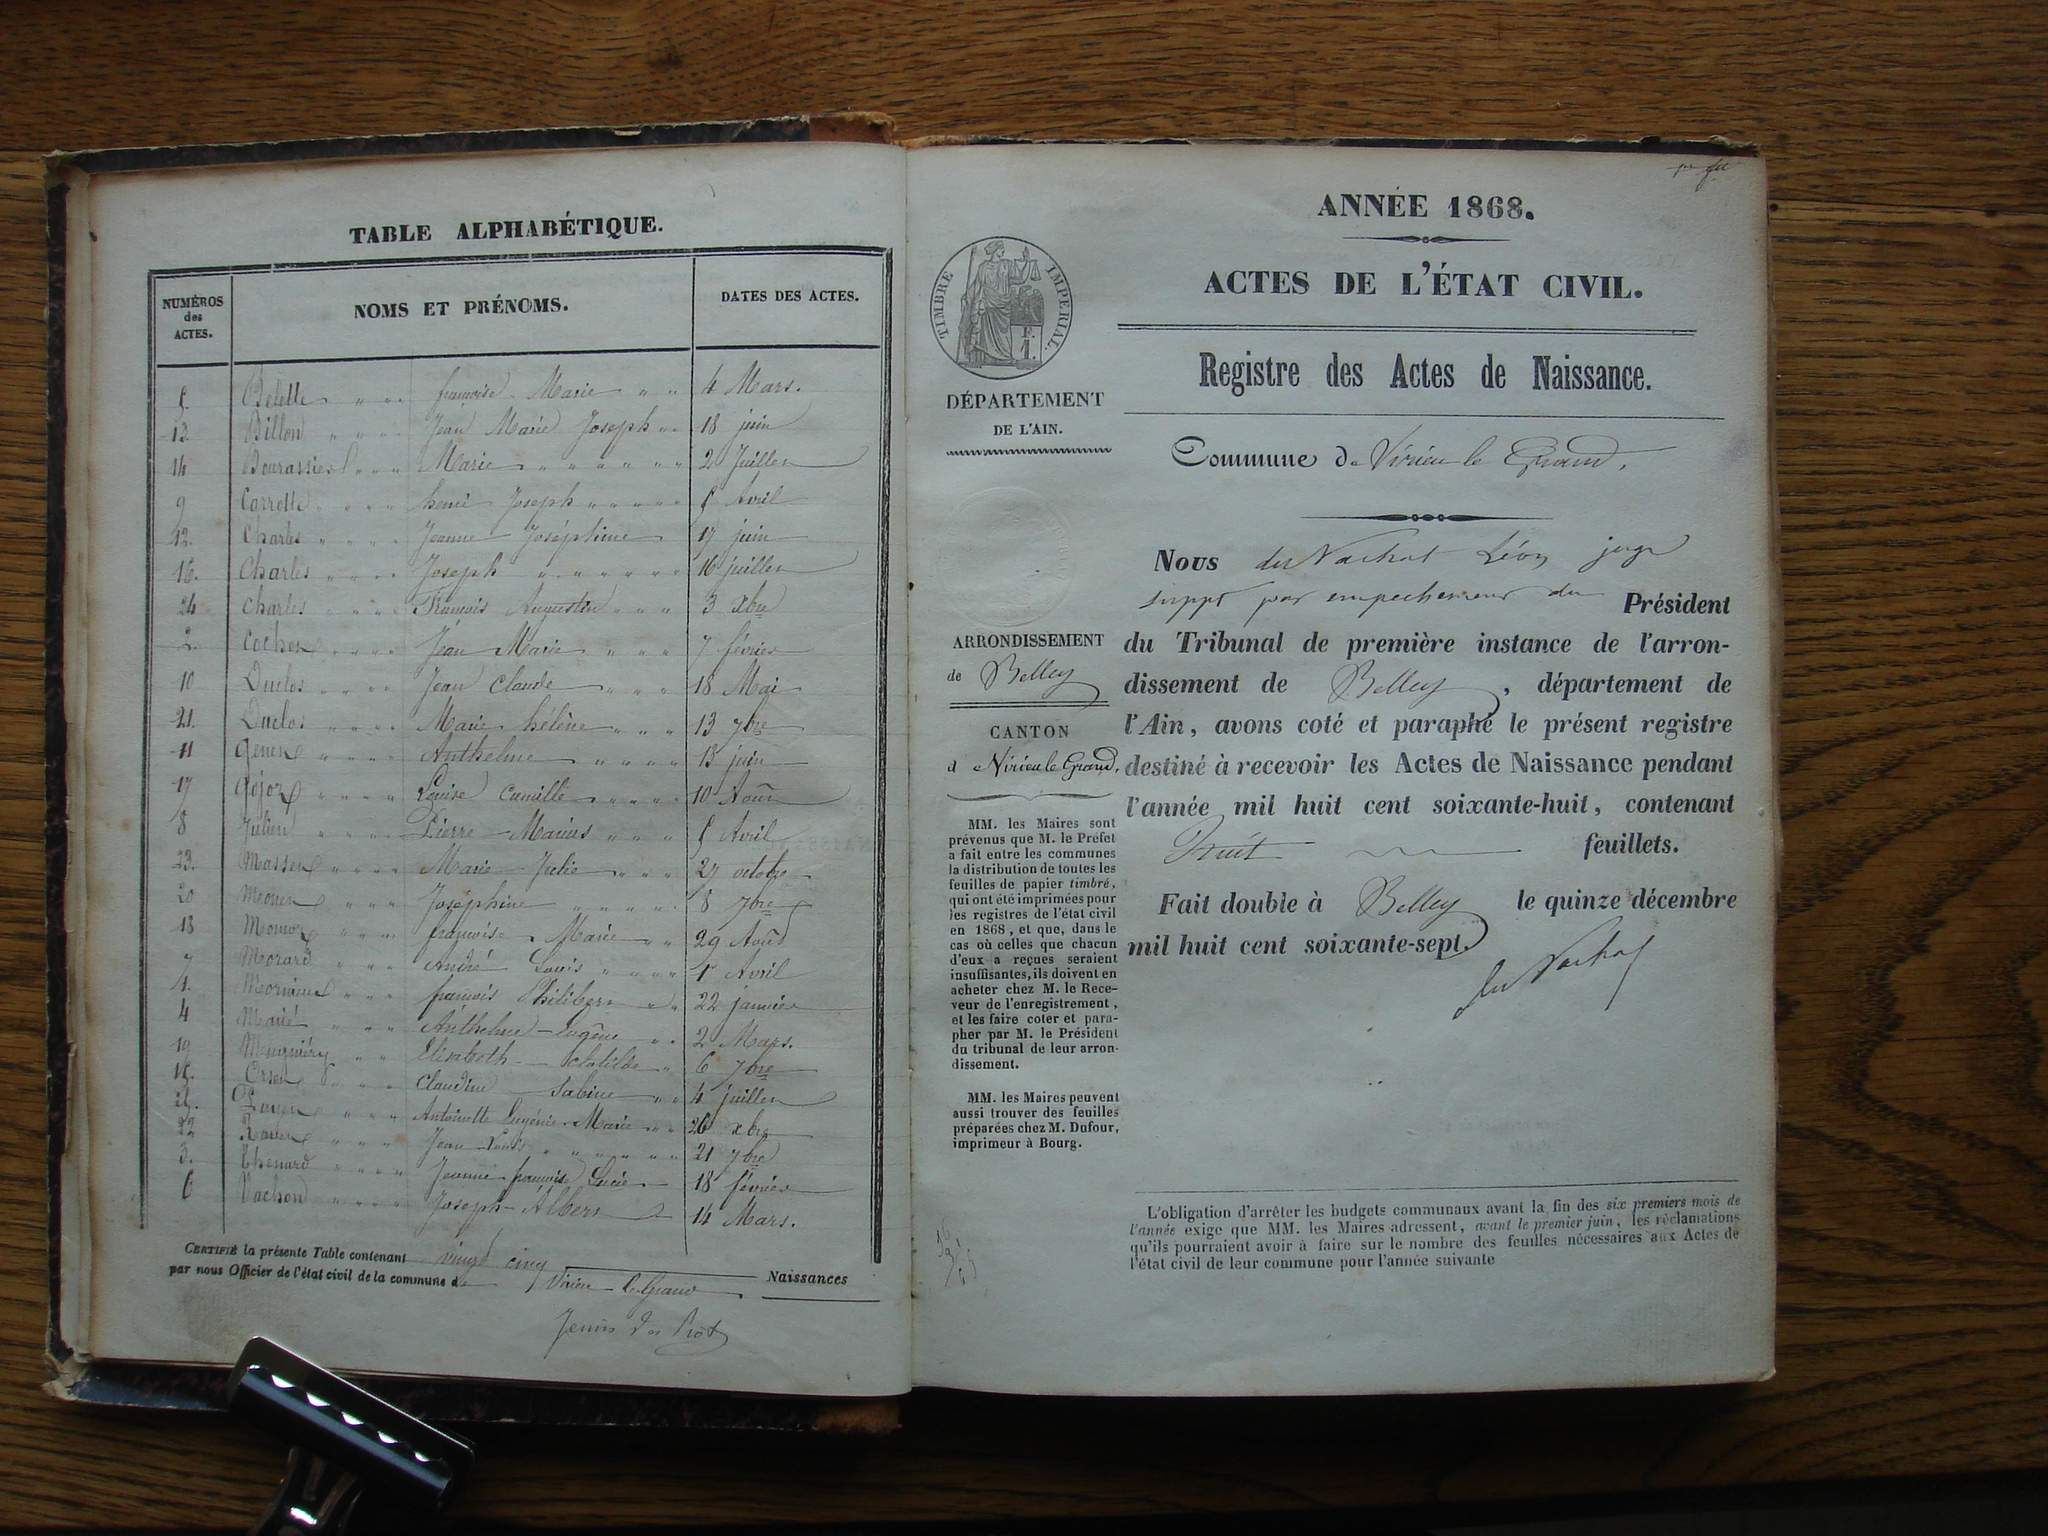 TABLE ALPHABÉTIQUE.
NUMÉROS des ACTES.
NOMS ET PRÉNOMS.
DATES DES ACTES.
5. Belette françoise Marie 4 Mars.
13. Billon Jean Marie Joseph 18 juin
14 Marie 2 Juillet
9 henri Joseph 5 Avril
12. Charles Jeanne Joséphine 17 juin
16. Charles Joseph 16 juillet
24 Charles François Augustin 3 xbre
2. Cochon Jean Marie 7 février
10 Duclos Jean Claude 18 Mai
21. Duclos Marie hélène 13 7bre
11 Anthelme 15 juin
17 Louise Camille 10 Août
8 Julien Pierre Marius 5 Avril
23. Marie Julie 27 octobre
20 Joséphine 8 7bre
18 françoise Marie 29 Août
7 Morard André Louis 5 Avril
1. françois Philibert 22 janvier
4 Anthelme Eugène 2 Mars.
19 Elisabeth clotilde 6 7bre
15. Claudine Sabine 4 juillet
25. Antoinette Eugénie Marie 26 xbre
22 Jean Louis 21 7bre
3. Thenard Jeanne françoise Lucie 18 février
6 Vachon Joseph Albert 14 Mars.
CERTIFIÉ la présente Table contenant vingt cinq Naissances
par nous Officier de l'état civil de la commune de Virieu le Grand
ANNÉE 1868.
ACTES DE L'ÉTAT CIVIL.
Registre des Actes de Naissance.
TIMBRE IMPERIAL.
F.
1.
DÉPARTEMENT
DE L'AIN.
Commune de Virieu le Grand.
Nous du Nachat Léon juge
suppt par empechement du Président
du Tribunal de première instance de l'arron-
dissement de Belley, département de
l'Ain, avons coté et paraphé le présent registre
destiné à recevoir les Actes de Naissance pendant
l'année mil huit cent soixante-huit, contenant
huit feuillets.
Fait double à Belley le quinze décembre
mil huit cent soixante-sept.
du Nachat
ARRONDISSEMENT
de Belley
CANTON
d Virieu le Grand.
MM. les Maires sont
prévenus que M. le Préfet
a fait entre les communes
la distribution de toutes les
feuilles de papier timbré,
qui ont été imprimées pour
les registres de l'état civil
en 1868, et que, dans le
cas où celles que chacun
d'eux a reçues seraient
insuffisantes, ils doivent en
acheter chez M. le Rece-
veur de l'enregistrement,
et les faire coter et para-
pher par M. le Président
du tribunal de leur arron-
dissement.
MM. les Maires peuvent
aussi trouver des feuilles
préparées chez M. Dufour,
imprimeur à Bourg.
L'obligation d'arrêter les budgets communaux avant la fin des six premiers mois de
l'année exige que MM. les Maires adressent, avant le premier juin, les réclamations
qu'ils pourraient avoir à faire sur le nombre des feuilles nécessaires aux Actes de
l'état civil de leur commune pour l'année suivante